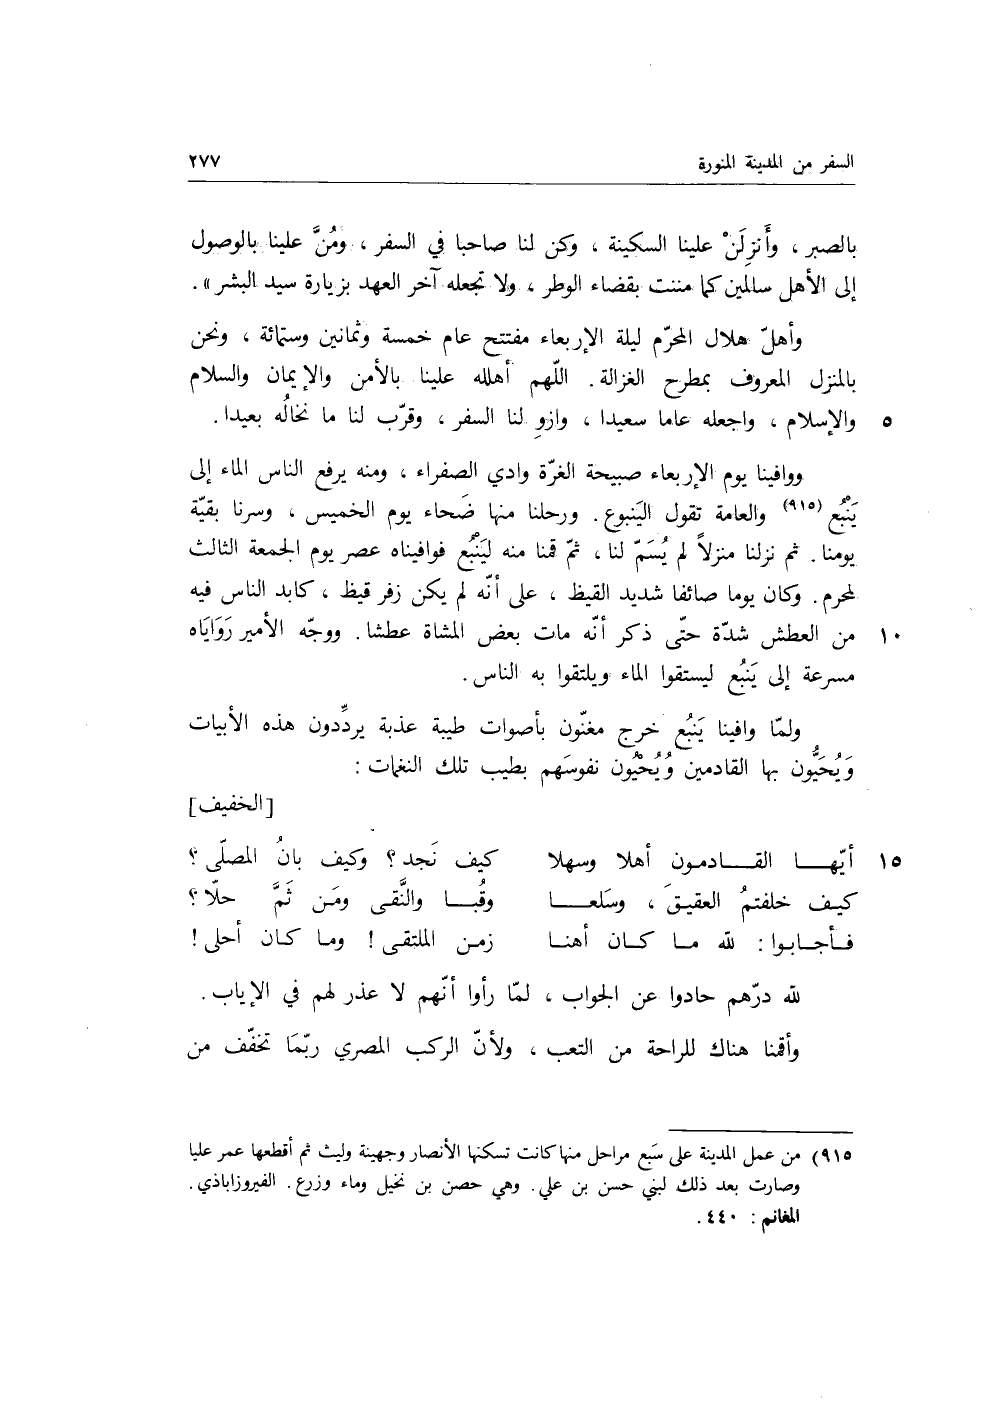 السفر من المدينة المنورة ٢٧٧
بالصبر ، وأَنزِلَنْ علينا السكينة ، وكن لنا صاحبا في السفر ، ومُنَّ علينا بالوصول
إلى الأهل سالمين كما مننت بقضاء الوطر ، ولا تجعله آخر العهد بزيارة سيد البشر » .
وأهلّ هلال المحرّم ليلة الإربعاء مفتتح عام خمسة وثمانين وستمائة ، ونحن
بالمنزل المعروف بمطرح الغزالة . اللّهم أهلله علينا بالأمن والإيمان والسلام
٥ والإسلام ، واجعله عاما سعيدا ، وازوِ لنا السفر ، وقرّب لنا ما نخالُه بعيدا .
ووافينا يوم الإربعاء صبيحة الغرّة وادي الصفراء ، ومنه يرفع الناس الماء إلى
يَنْبُع (٩١٥) والعامة تقول اليَنبوع . ورحلنا منها ضَحاء يوم الخميس ، وسرنا بقيّة
يومنا . ثم نزلنا منزلاً لم يُسَمّ لنا ، ثمّ قمنا منه ليَنْبُع فوافيناه عصر يوم الجمعة الثالث
لمحرم . وكان يوما صائفا شديد القيظ ، على أنّه لم يكن زفر قيظ ، كابد الناس فيه
١٠ من العطش شدّة حتّى ذكر أنّه مات بعض المشاة عطشا . ووجّه الأمير رَوَايَاه
مسرعة إلى يَنبُع ليستقوا الماء ويلتقوا به الناس .
ولمّا وافينا يَنبُع خرج مغنّون بأصوات طيبة عذبة يردِّدون هذه الأبيات
وَيُحَيُّون بها القادمين وُيُحْيُون نفوسَهم بطيب تلك النغمات :
[الخفيف]
١٥ أيّهـــا القـــادمون أهلا وسهلا كيف نَجد ؟ وكيف بانُ المصلّى ؟
كيـف خلفتمُ العقيقَ ، وسَلعـــا وقُبـــا والنَّقى ومَن ثَمَّ حلّا ؟
فـأجـابـوا : لله مـا كـان أهنـا زمـن الملتقـى ! ومـا كـان أحلى !
لله درّهم حادوا عن الجواب ، لمّا رأوا أنّهم لا عذر لهم في الإياب .
وأقمنا هناك للراحة من التعب ، ولأنّ الركب المصري ربّمَا تخفّف من
٩١٥) من عمل المدينة على سَبع مراحل منها كانت تسكنها الأنصار وجهينة وليث ثم أقطعها عمر عليا
وصارت بعد ذلك لبني حسن بن علي . وهي حصن بن نخيل وماء وزرع . الفيروزاباذي .
المغانم : ٤٤٠ .